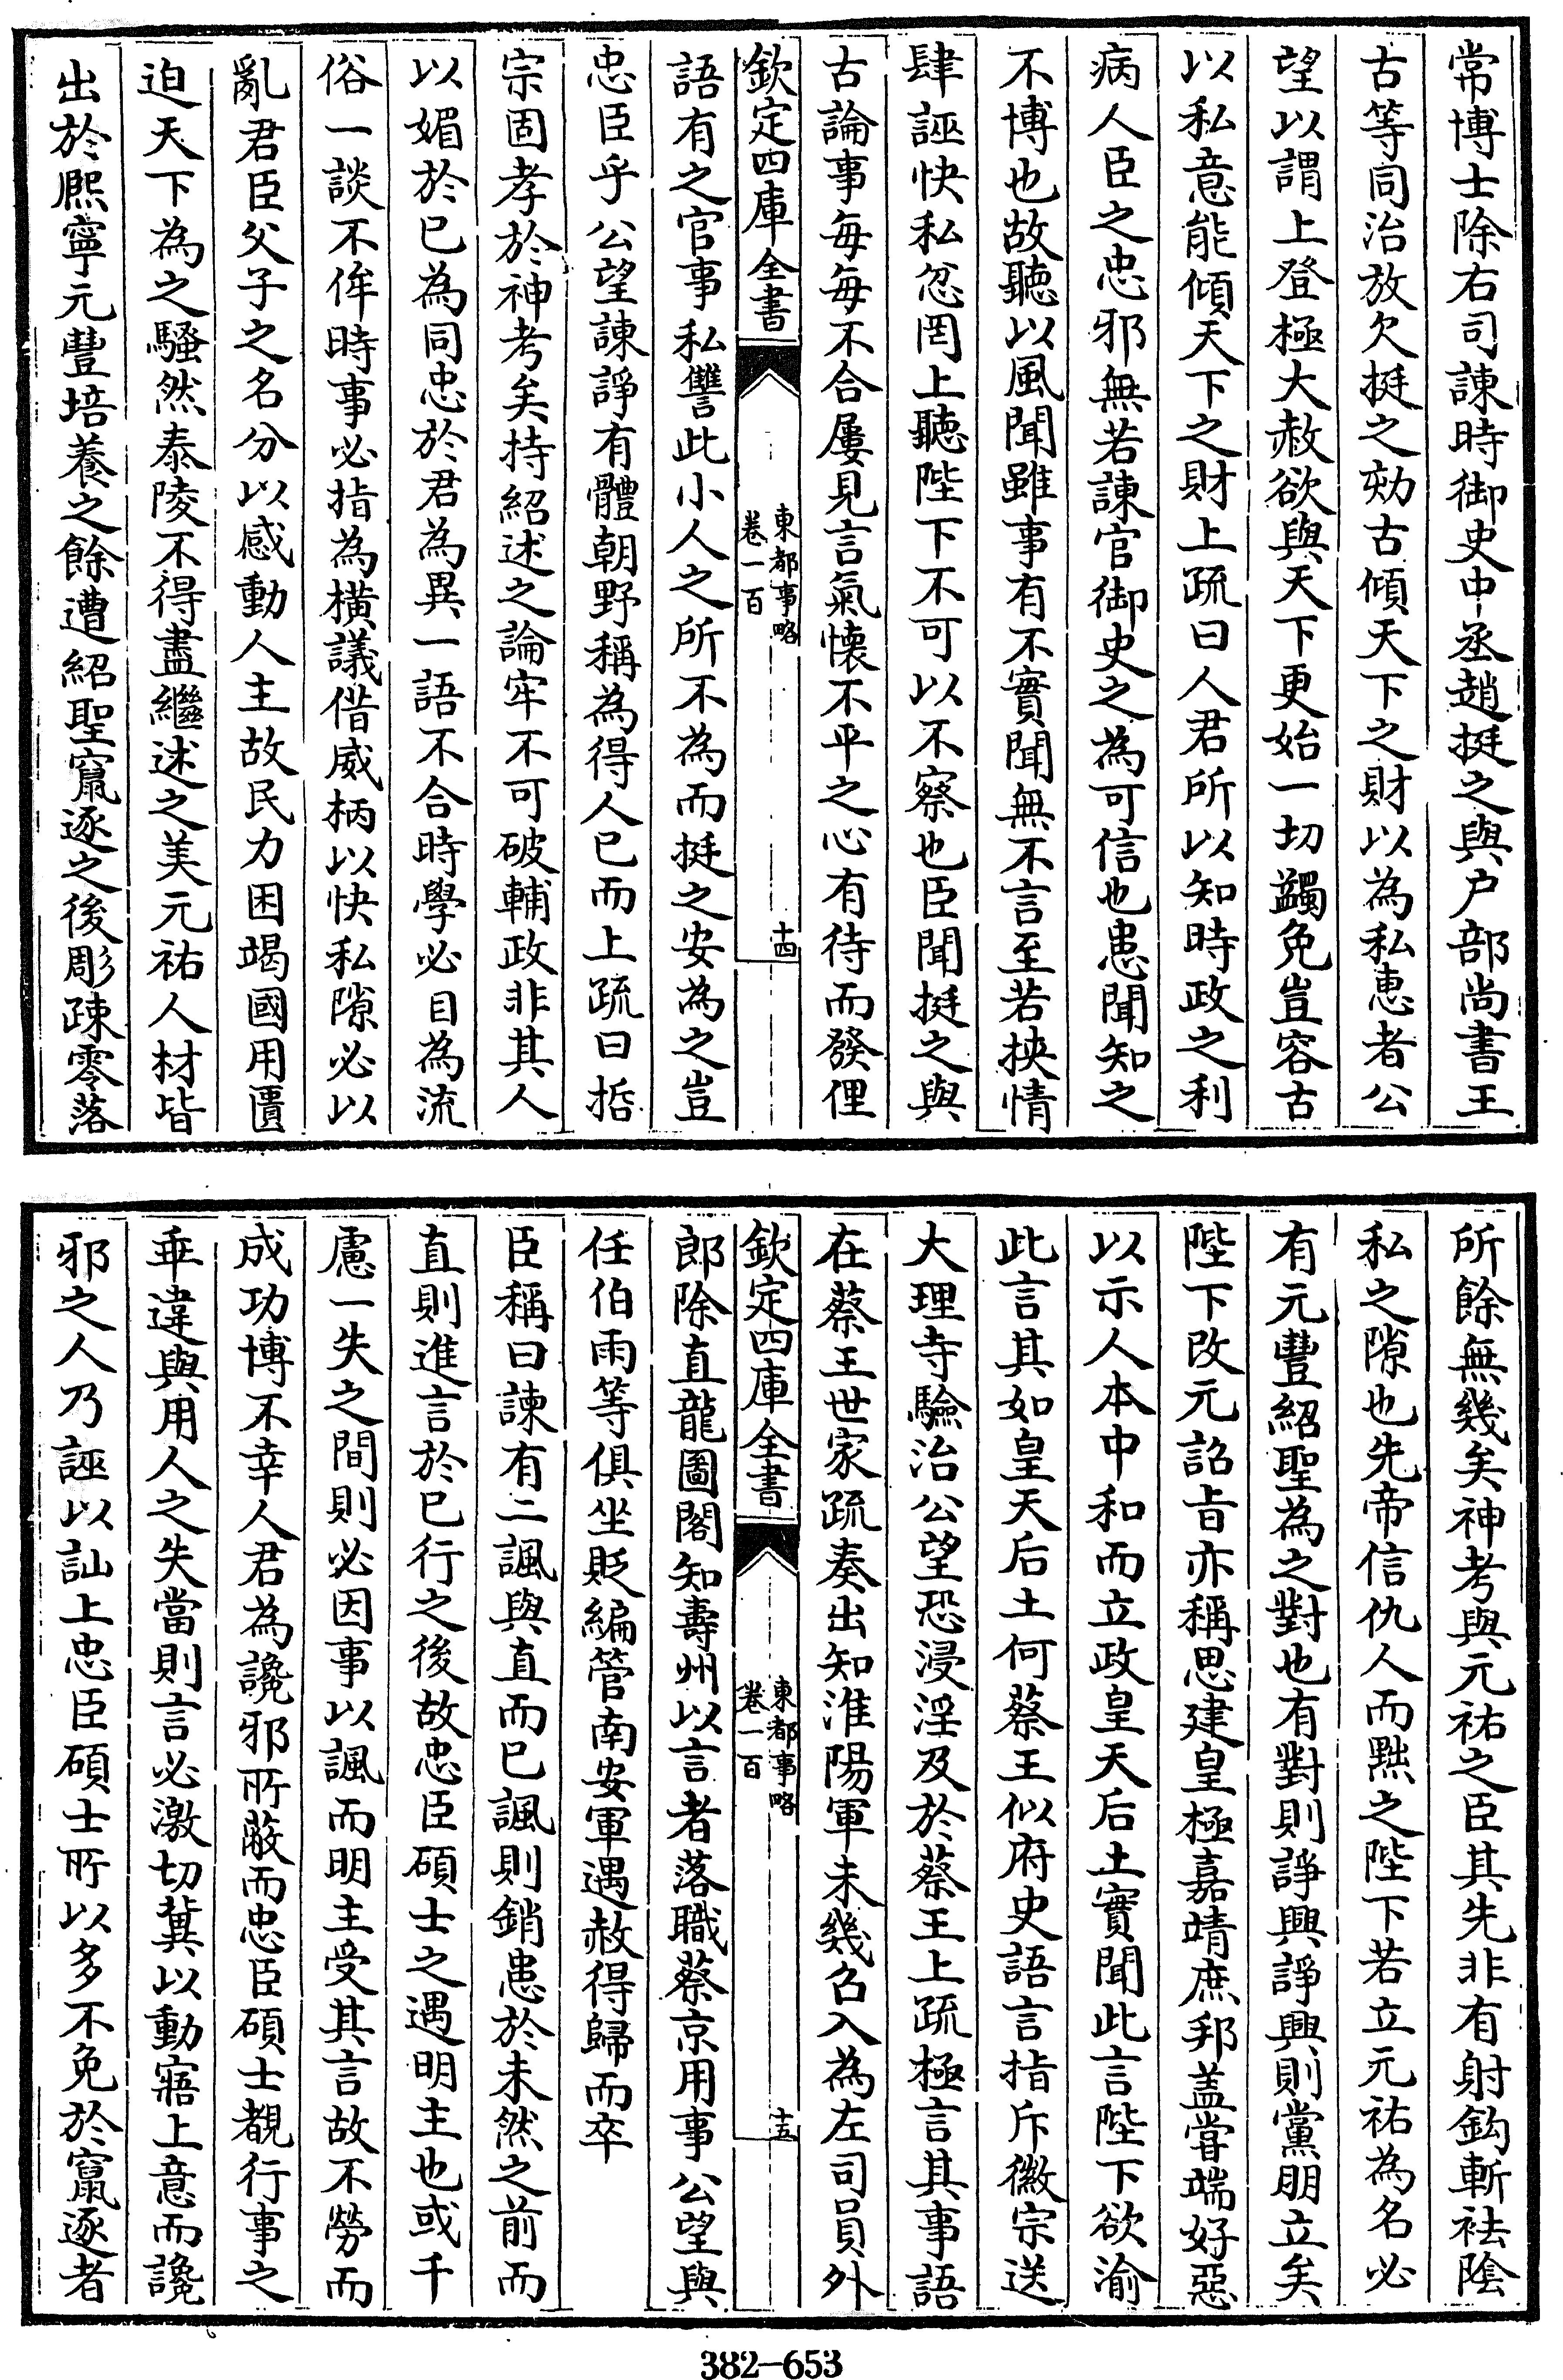 常博士除右司諫時御史中丞趙挺之與户部尚書王
古等同治放欠挺之劾古傾天下之財以為私恵者公
望以謂上登極大赦欲與天下更始一切蠲免豈容古
以私意能傾天下之財上疏曰人君所以知時政之利
病人臣之忠邪無若諫官御史之為可信也患聞知之
不博也故聽以風聞雖事有不實聞無不言至若挾情
肆誣快私忿罔上聽陛下不可以不察也臣聞挺之與
古論事每每不合屢見言氣懐不平之心有待而發俚
欽定四庫全書
東都事略
卷一百
十四
語有之官事私讐此小人之所不為而挺之安為之豈
忠臣乎公望諫諍有體朝野稱為得人已而上疏曰哲
宗固孝於神考矣持紹述之論牢不可破輔政非其人
以媚於已為同忠於君為異一語不合時學必目為流
俗一談不侔時事必指為横議借威柄以快私隙必以
亂君臣父子之名分以感動人主故民力困竭國用匱
迫天下為之騷然泰陵不得盡繼述之美元祐人材皆
出於熈寧元豐培養之餘遭紹聖竄逐之後彫疎零落
所餘無幾矣神考與元祐之臣其先非有射鈎斬袪隂
私之隙也先帝信仇人而黜之陛下若立元祐為名必
有元豐紹聖為之對也有對則諍興諍興則黨朋立矣
陛下改元詔㫖亦稱思建皇極嘉靖庶邦盖嘗端好惡
以示人本中和而立政皇天后土實聞此言陛下欲渝
此言其如皇天后土何蔡王似府史語言指斥徽宗送
大理寺驗治公望恐浸淫及於蔡王上疏極言其事語
在蔡王世家疏奏出知淮陽軍未幾召入為左司員外
欽定四庫全書
東都事略
卷一百
十五
郎除直龍圖閣知壽州以言者落職蔡京用事公望與
任伯雨等俱坐貶編管南安軍遇赦得歸而卒
臣稱曰諫有二諷與直而已諷則銷患於未然之前而
直則進言於已行之後故忠臣碩士之遇明主也或千
慮一失之間則必因事以諷而明主受其言故不勞而
成功博不幸人君為讒邪所蔽而忠臣碩士覩行事之
乖違與用人之失當則言必激切冀以動寤上意而讒
邪之人乃誣以訕上忠臣碩士所以多不免於竄逐者
382-653